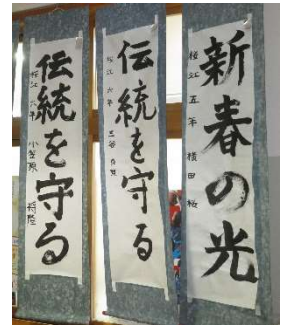 新春の光
桜江 五年 横田 桜
伝統を守る
桜江 六年
伝統を守る
桜江 六年 小笠原